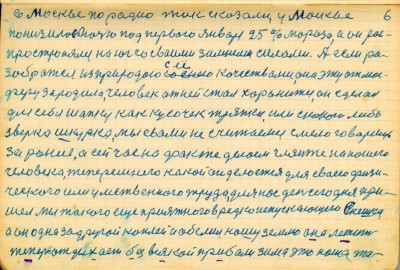 в Москве по радио так сказали, у Москве 6
понизилось ночью под первого января 25 % мороза, а он рас
простроняли на юг со своими зимними силами. А если ра
зобраться из природою сей
своими качествами она эту атмос
феру зародила, человек от ней стал хорониться, он сделал
для себя шапку как кусочек тряпки или с какого либо
зверка шкурка, мы с вами не считаем смело говорится
за раннее, а сейчас на факте делаем гляньте на нашего
человека, теперешнего какой он делается для своего физи
ческого или умственного труда, для нас день сегодня при
шел мы такого еще приятного вредного неиспускающего Снежка
а он одна за другой как пей побелил нашу землю она лежит
теперь отдыхает без всякой прибыли зима это наша та